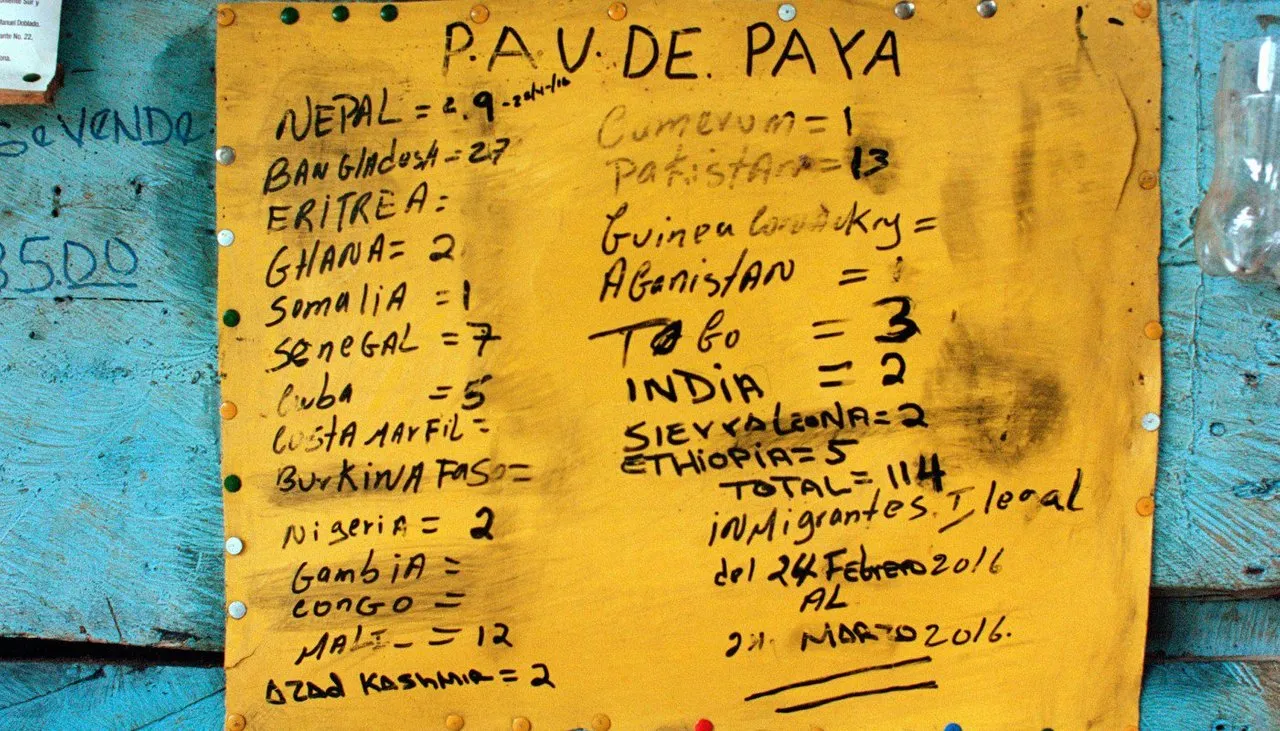 Manuel Doblado.
ante No. 22.
ona.
Se VENDE.
35.00
P.A.V. DE. PAYA
NEPAL = 2.9 -20/4-/16
BANGLAdesh = 27
ERITREA =
GHANA = 2
SomaliA = 1
SeneGAL = 7
Cuba = 5
COSTA MArFiL =
BurKiNA FASO =
NigeriA = 2
GambiA =
CONGO =
MALI_ = 12
AZAd KASHMIR = 2
Cumerum = 1
PakistAn = 13
Guinea ConAckry =
AGanistAN = 1
TOGo = 3
INDIA = 2
SIErrALEONA = 2
ETHIOPIA = 5
TOTAL = 114
iNMigrantes. Ilegal
del 24 Febrero 2016
AL
MARZO 2016.